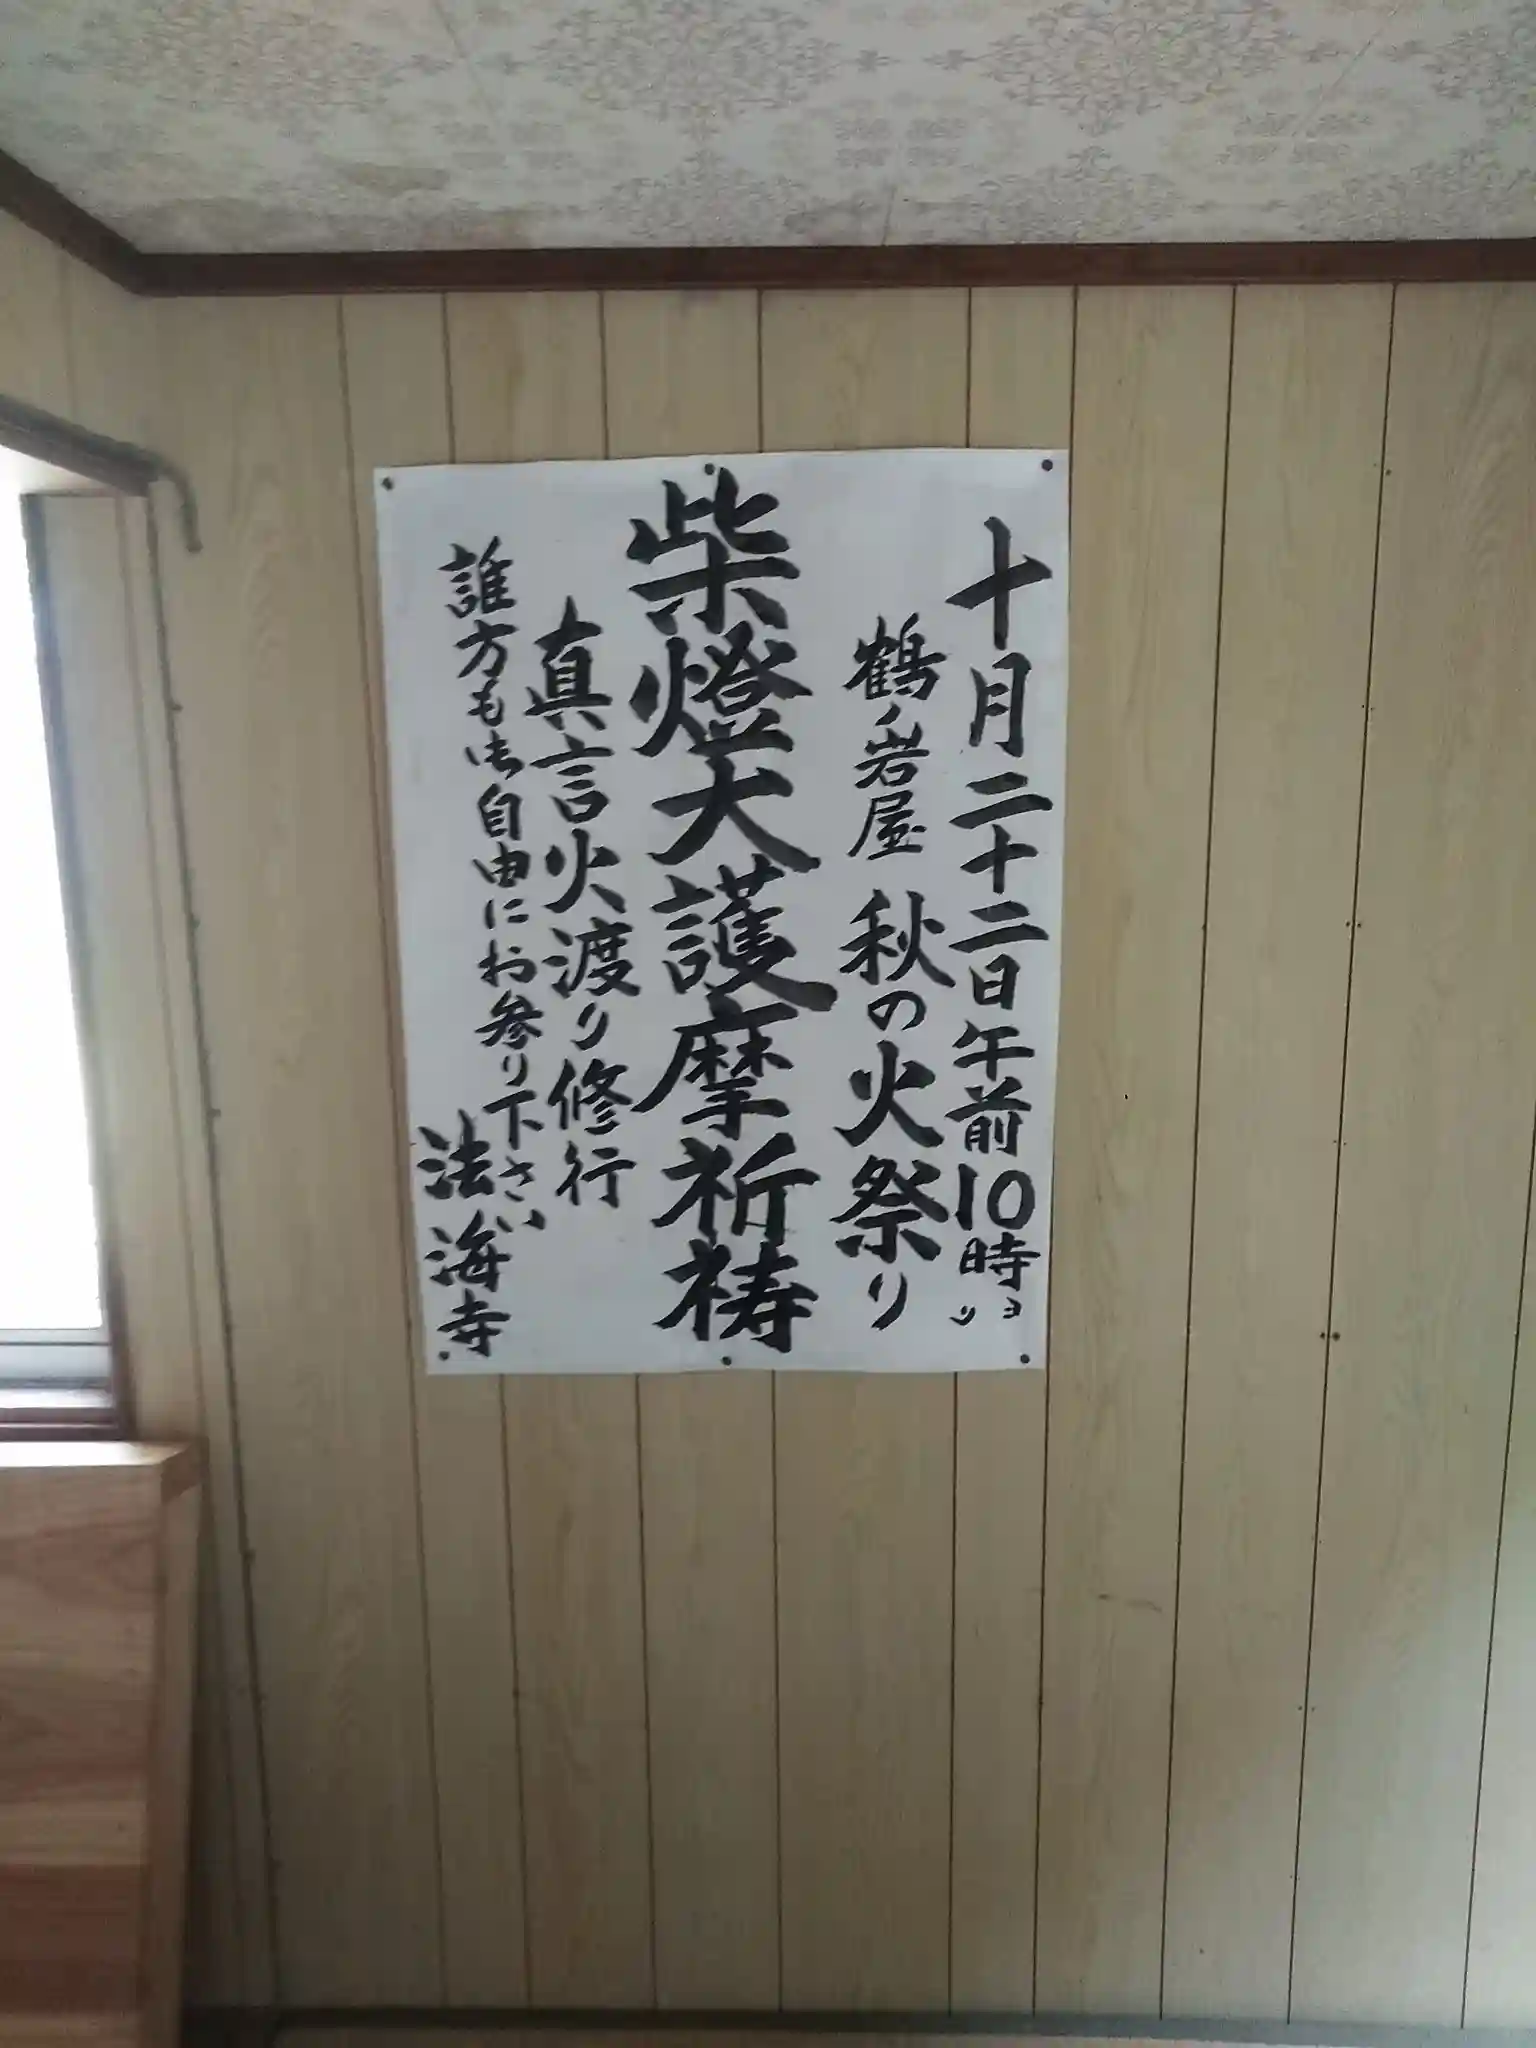 十月二十二日午前10時ヨリ
鶴ノ岩屋 秋の火祭り
柴燈大護摩祈祷
真言火渡り修行
誰方も御自由にお参り下さい
法海寺